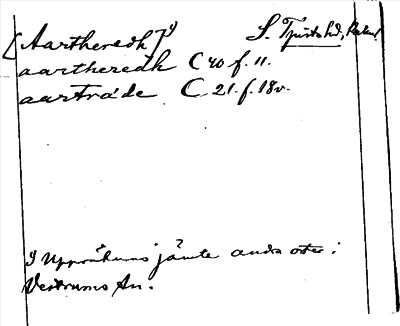 [Aartheredh]¹⁾ S. Tjusts hd,
aartheredh C 40 f. 11.
aartrade C 21. f. 18v.
¹⁾ Uppräknas jämte andra orter i
Vestrums sn.